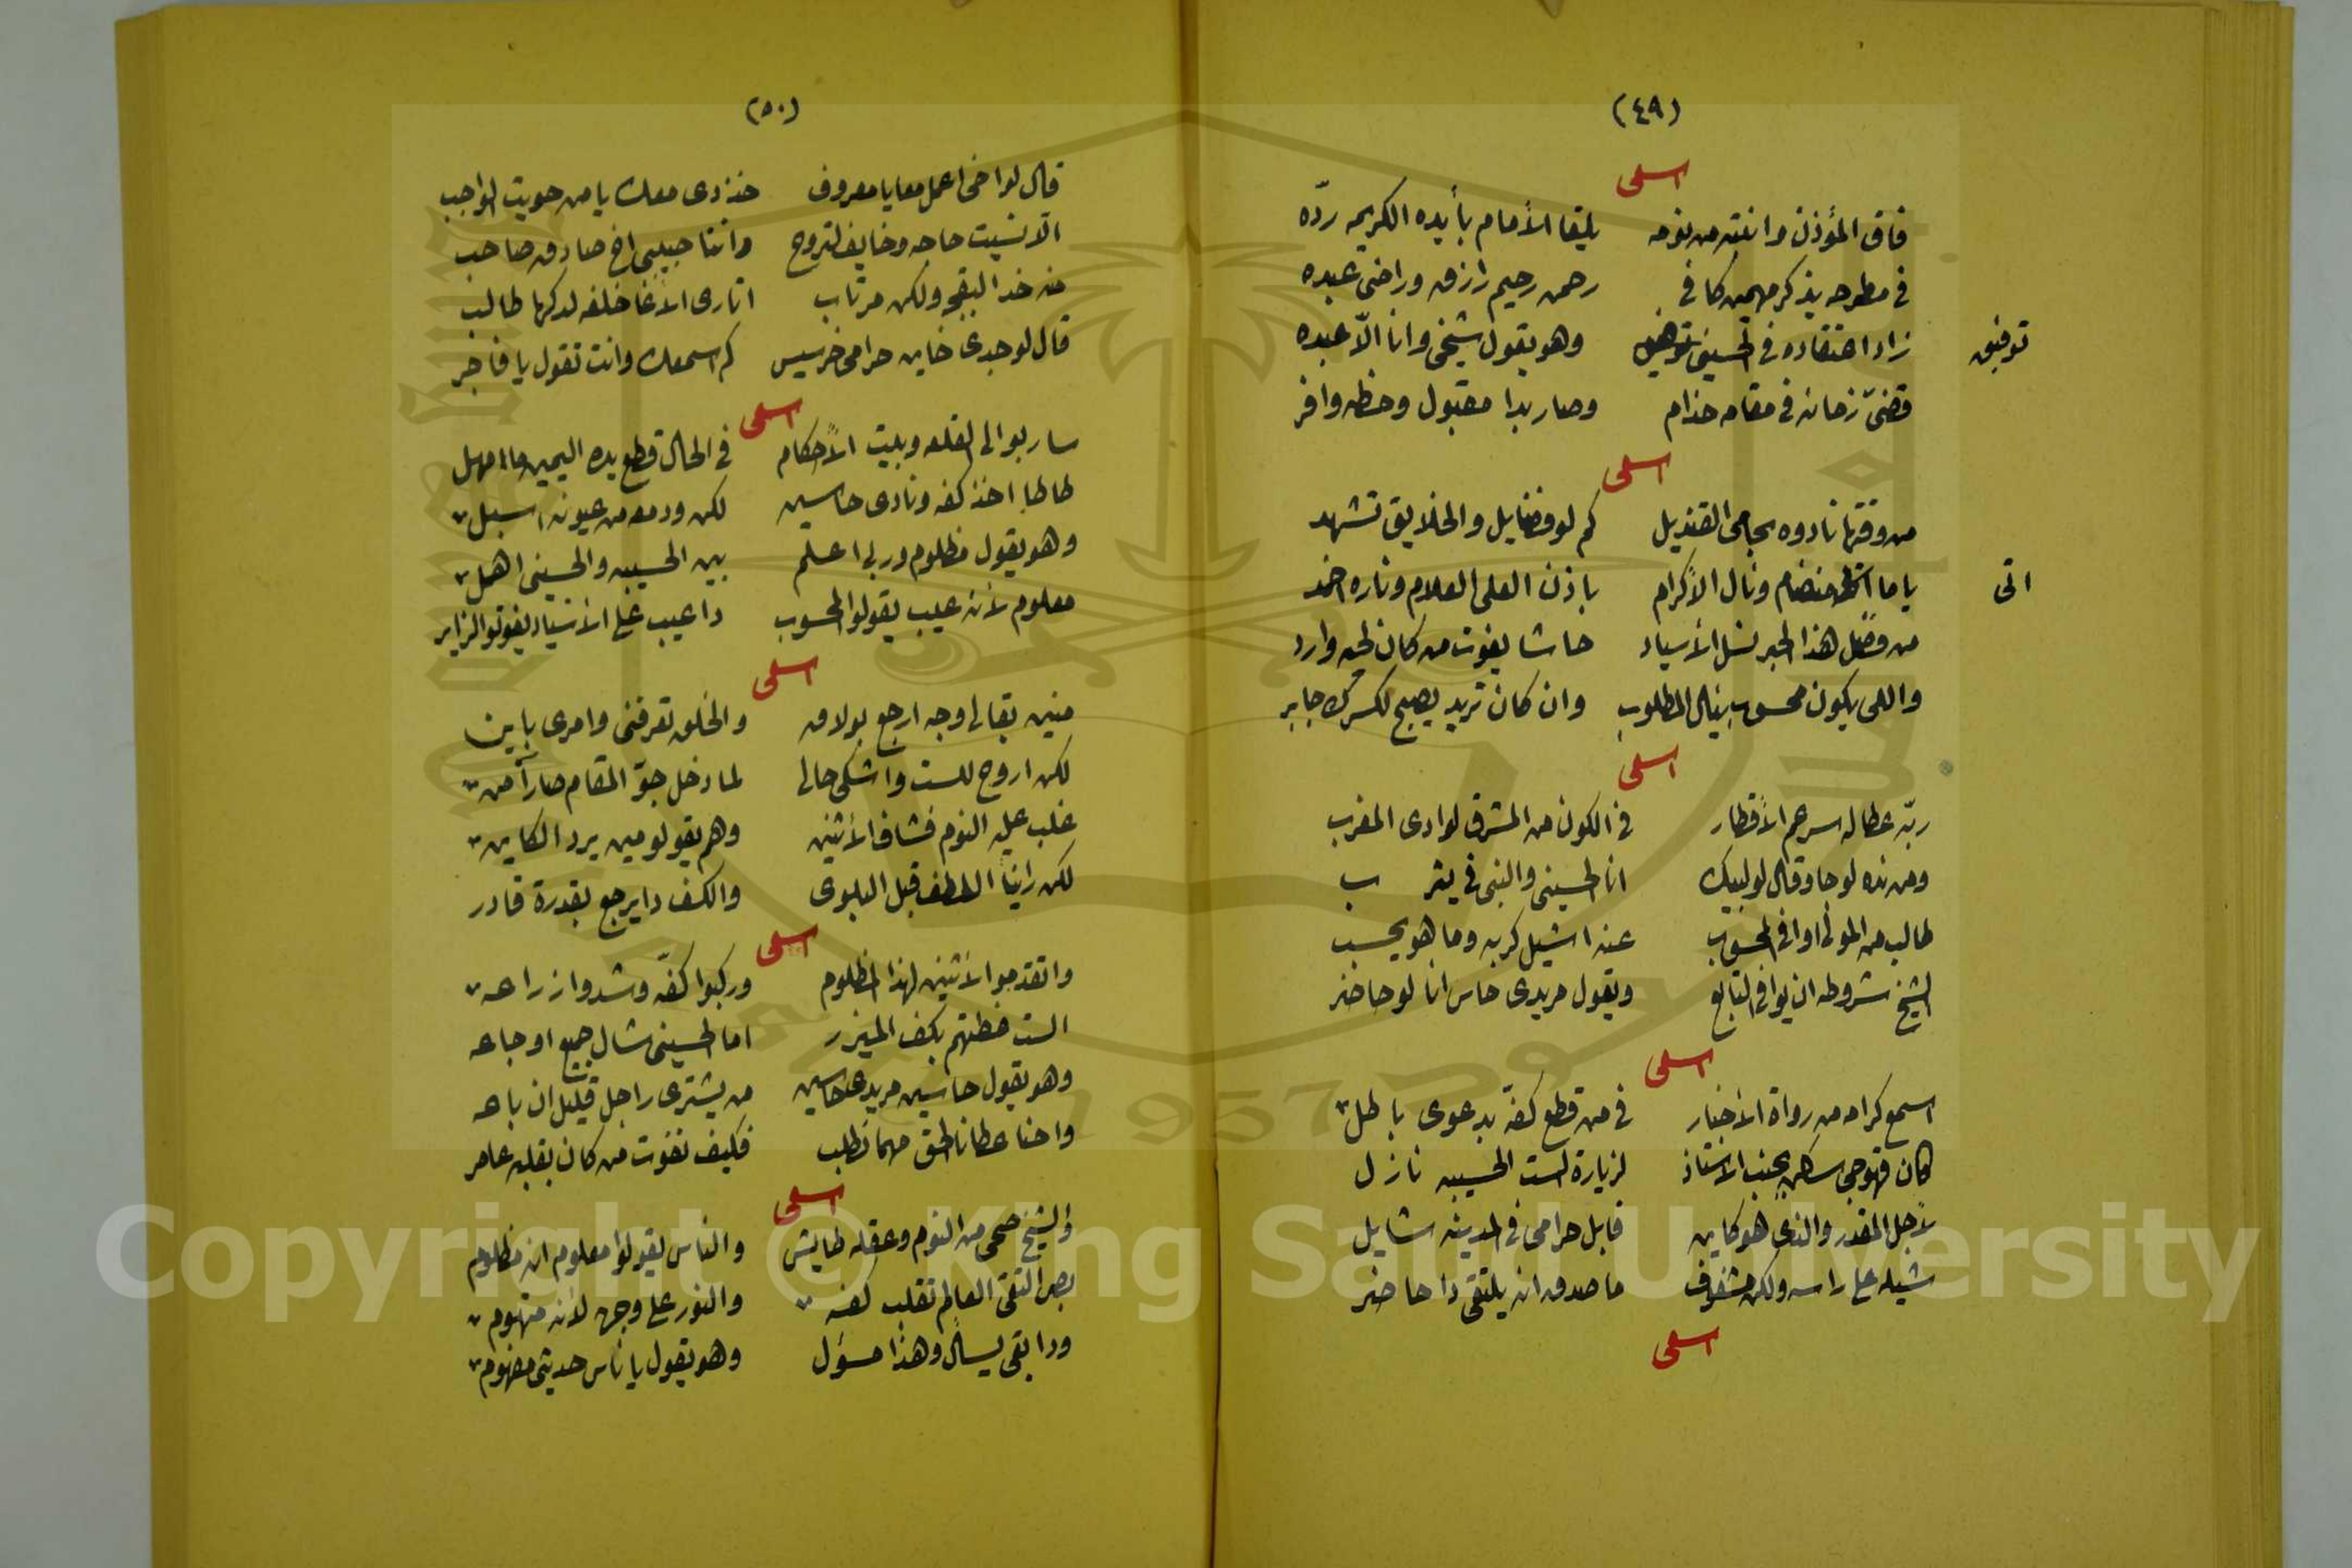 (٤٩)
اسلمى
فاق المؤذن وانتبه من نومه يلتقا الأمام بأيده الكريمه ردّه
فى مطرحه يذكر مهيمن كافى رحمن رحيم رازق وراضى عبده
زاد اعتقاده فى الحسينى وهو يقول شيخى وانا الّا عبده
توفيق
قضىّ زمانه فى مقامه خدام وصار بدا مقبول وحظه وافر
اسلمى
من وقتها نادوه بحامى القنديل كم لو فضايل والخلايق تشهد
ياما منضام ونال الأكرام باذن العلى العلام وناره اخمد
اتى
من فضل هذا الحبر نسل الأسياد حاشا يفوت من كان لحيه وارد
واللى يكون محسوب ينال المطلوب وان كان تريد يصبح لكسرك جابر
اسلمى
ربّه عطاله سرعم الأقطار فى الكون من المشرق لوادى المغرب
ومن نده لو جا وقال لو لبيك انا الحسينى والنبى فى يثرب
طالب من المولى اوافى المحسوب عنه اشيل كربه وما هو يحسب
الشيخ شروطه ان يوافى التابع ويقول مريدى حاس انا لو حاضر
اسلمى
اسمع كرامه من رواة الأخبار فى من قطع كفّه بدعوى باطل
كان قهوجى سكن بجنب الاستاذ لزيارة الست الحسيبه نازل
لأجل المقدر والذى هو كاين قابل حرامى فى المدينه شايل
شيله على راسه ولكن مشغوف ما صدق ان يلتقى دا حاضر
اسلمى
(٥٠)
قال لو اخى اعمل معايا معروف خذ دى معك يا من حويت الواجب
الّا نسيت حاجه وخايف لتروح وانتا حبيبى اخ صادق صاحب
منه خد البقجه ولكن مرتاب اتارى الأغا خلفه لدكها طالب
قال لو جدى خاين حرامى خرسيس كم اسمعك وانت تقول يا فاجر
اسلمى
سار بو الى القلعه وبيت الأحكام فى الحال قطع يده اليمين ما امهل
طاطا اخذ كفه ونادى حاسين لكن ودمعه من عيونه اسبل
وهو يقول مظلوم وربى اعلم بين الحسيبه والحسينى اهمل
معلوم لأنه عيب يقولوا المحسوب دا عيب على الأسياد يفوتوا الزاير
اسلمى
منين بقالى وجه ارجع بولاق والخلق تعرفنى وامرى باين
لكن اروح للست واشكى حالى لما دخل جوّ المقام صار آمن
غلب عليه النوم فشاف الأثنين وهم يقولو مين يرد الكاين
لكن راينا اللطف قبل البلوى والكف دا يرجع بقدرة قادر
اسلمى
واتقدموا الأثنين لهذا المظلوم وركبوا كفّه وشدوا زراعه
الست غطتهم بكف الميزر اما الحسينى شال جميع اوجاعه
وهو يقول حاسين مريدى حاسين من يشترى راجل قليل ان باعه
واحنا عطانا الحق مهما نطلب فكيف نفوت من كان بقلبه عامر
اسلمى
والشيخ صحى من النوم وعقله طايش والناس يقولوا معلوم انه مظلوم
بص التقى العالم تقلب كفه والنور على وجهه لأنه متهوم
ودا بقى يسأل وهذا مسؤل وهو يقول يا ناس حديثى مفهوم
Copyright © King Saud University
1957